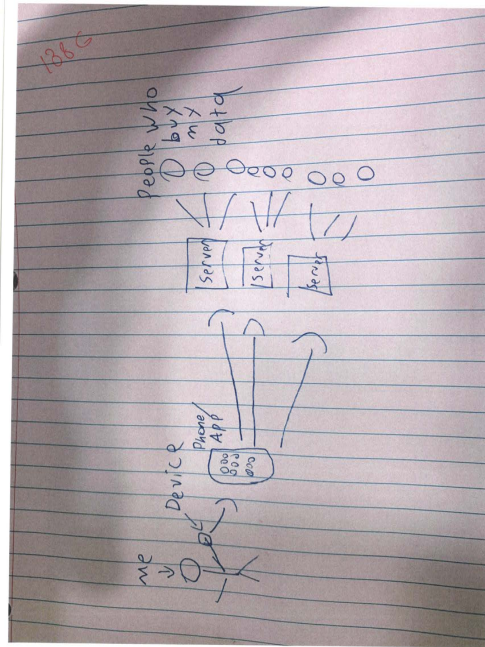 138G
me
Device
Phone/
App
Server
Server
Server
People who
buy
my
data